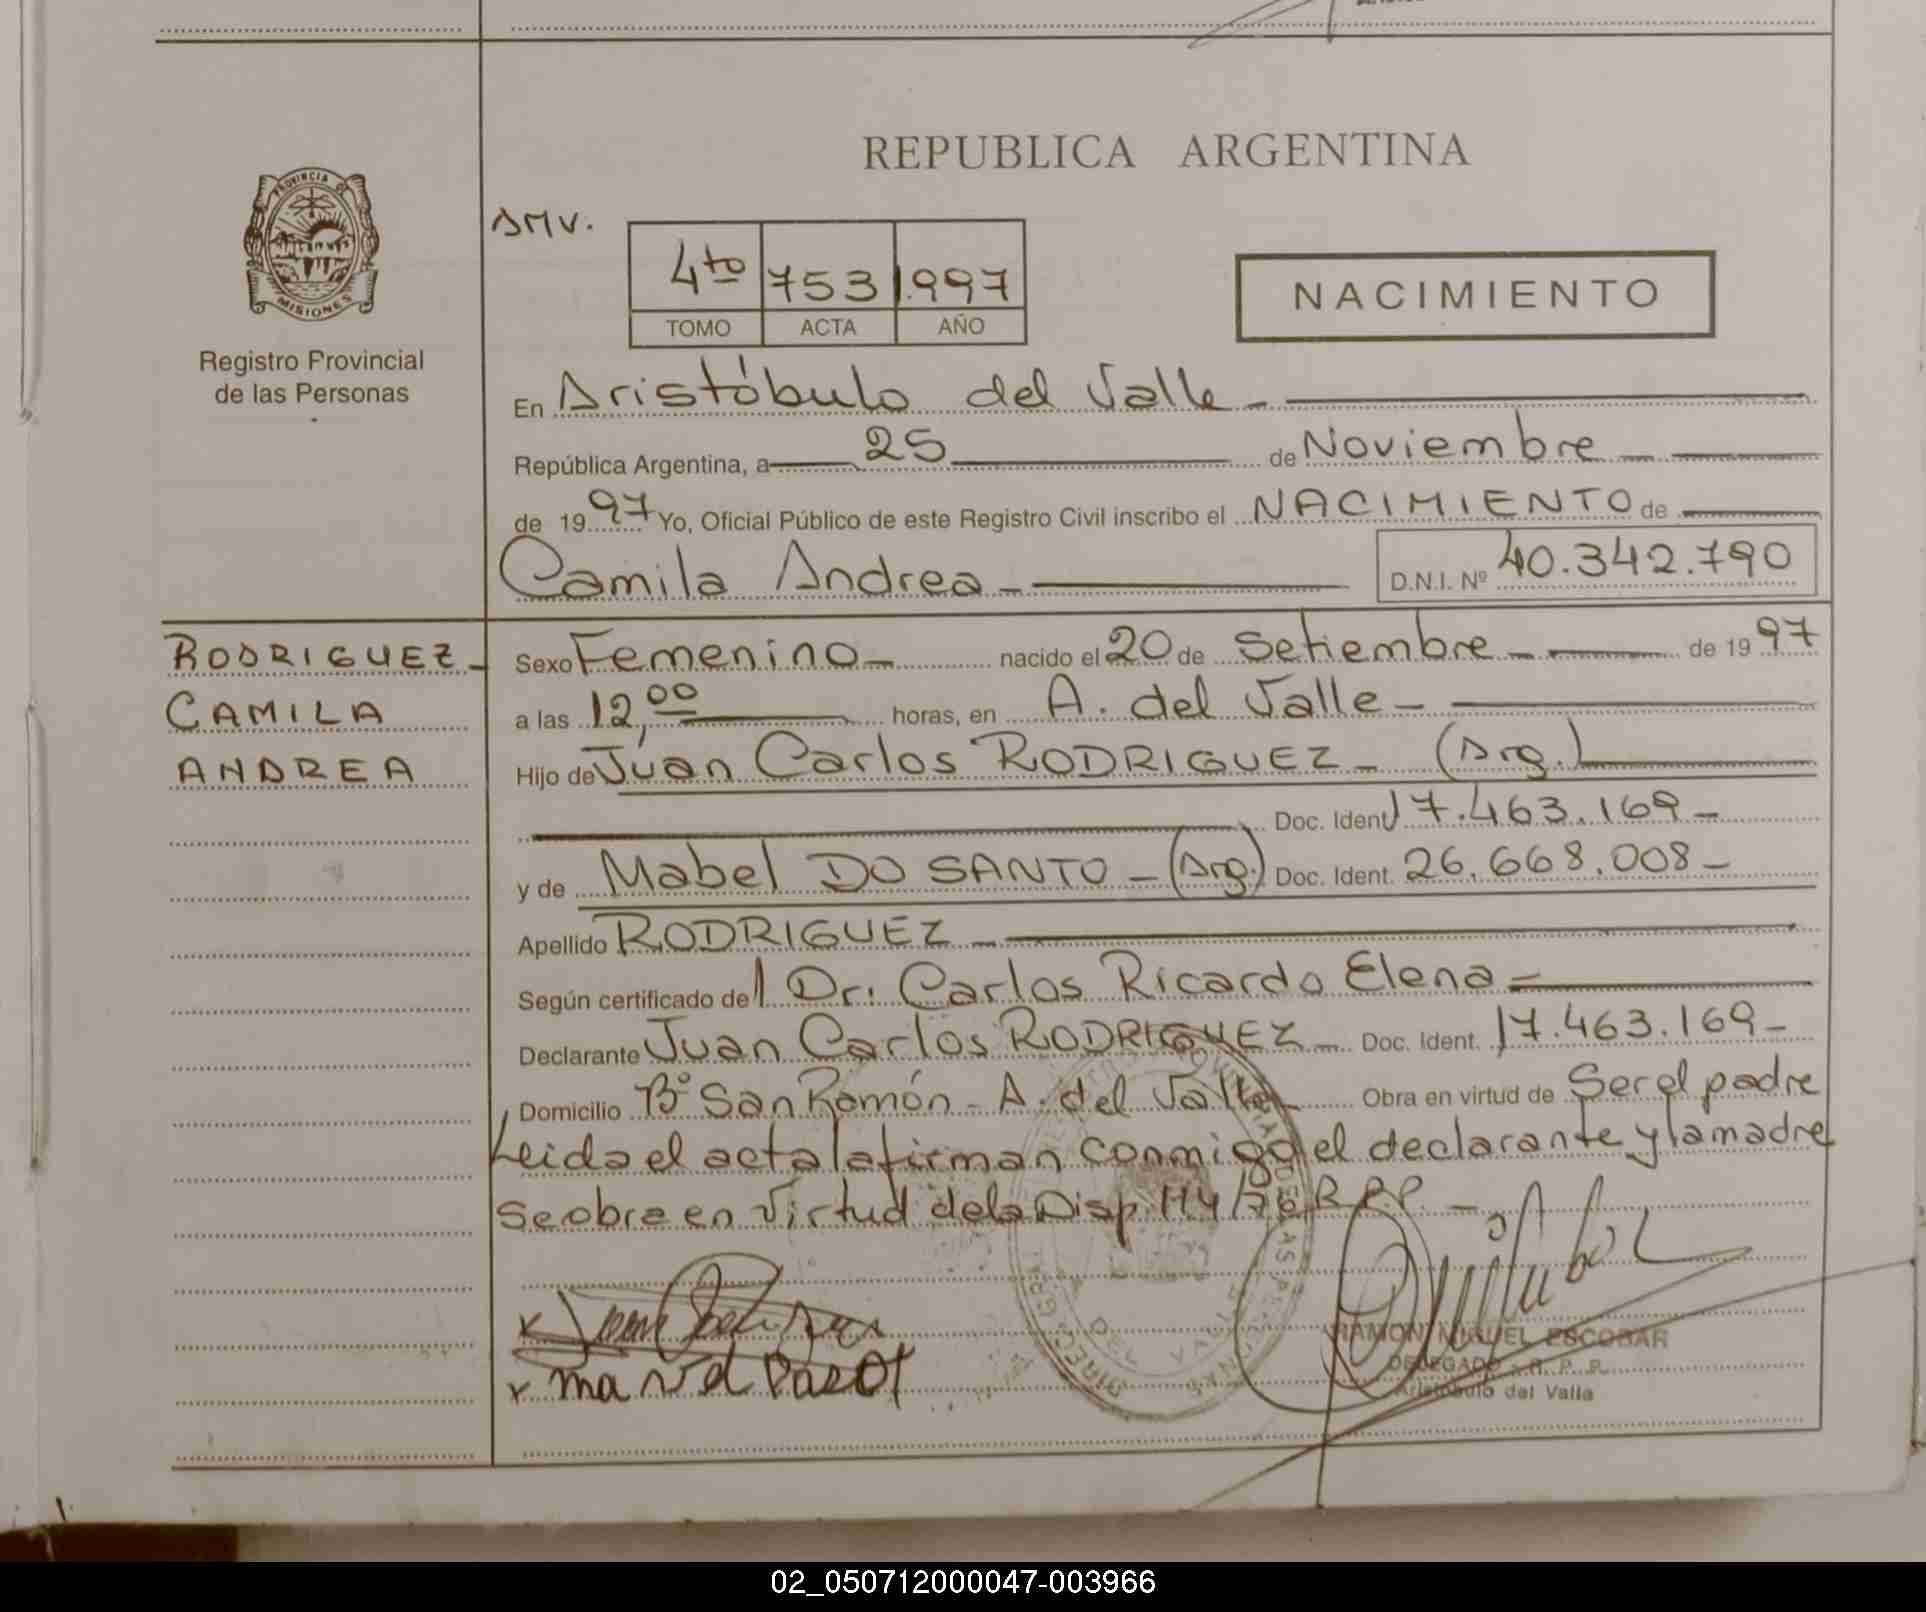 REPUBLICA ARGENTINA
PROVINCIA DE
MISIONES
Registro Provincial
de las Personas
4to 753 1997
TOMO ACTA AÑO
NACIMIENTO
En Aristóbulo del Valle
República Argentina, a 25 de Noviembre
de 1997 Yo, Oficial Público de este Registro Civil inscribo el NACIMIENTO de
Camila Andrea D.N.I. Nº 40.342.790
RODRIGUEZ
CAMILA
ANDREA
Sexo Femenino nacido el 20 de Setiembre de 1997
a las 12,00 horas, en A. del Valle
Hijo de Juan Carlos RODRIGUEZ (Arg.)
Doc. Ident 17.463.169
y de Mabel DO SANTO (Arg.) Doc. Ident. 26.668.008
Apellido RODRIGUEZ
Según certificado del Dr. Carlos Ricardo Elena
Declarante Juan Carlos RODRIGUEZ Doc. Ident. 17.463.169
Domicilio Bº San Ramón - A. del Valle Obra en virtud de Ser el padre
Leida el acta la firman conmigo el declarante y la madre
Se obra en Virtud de la Disp. 114/76 R.P.P.
RAMON MIGUEL ESCOBAR
DELEGADO - R. P. P.
Aristobulo del Valle
02_050712000047-003966